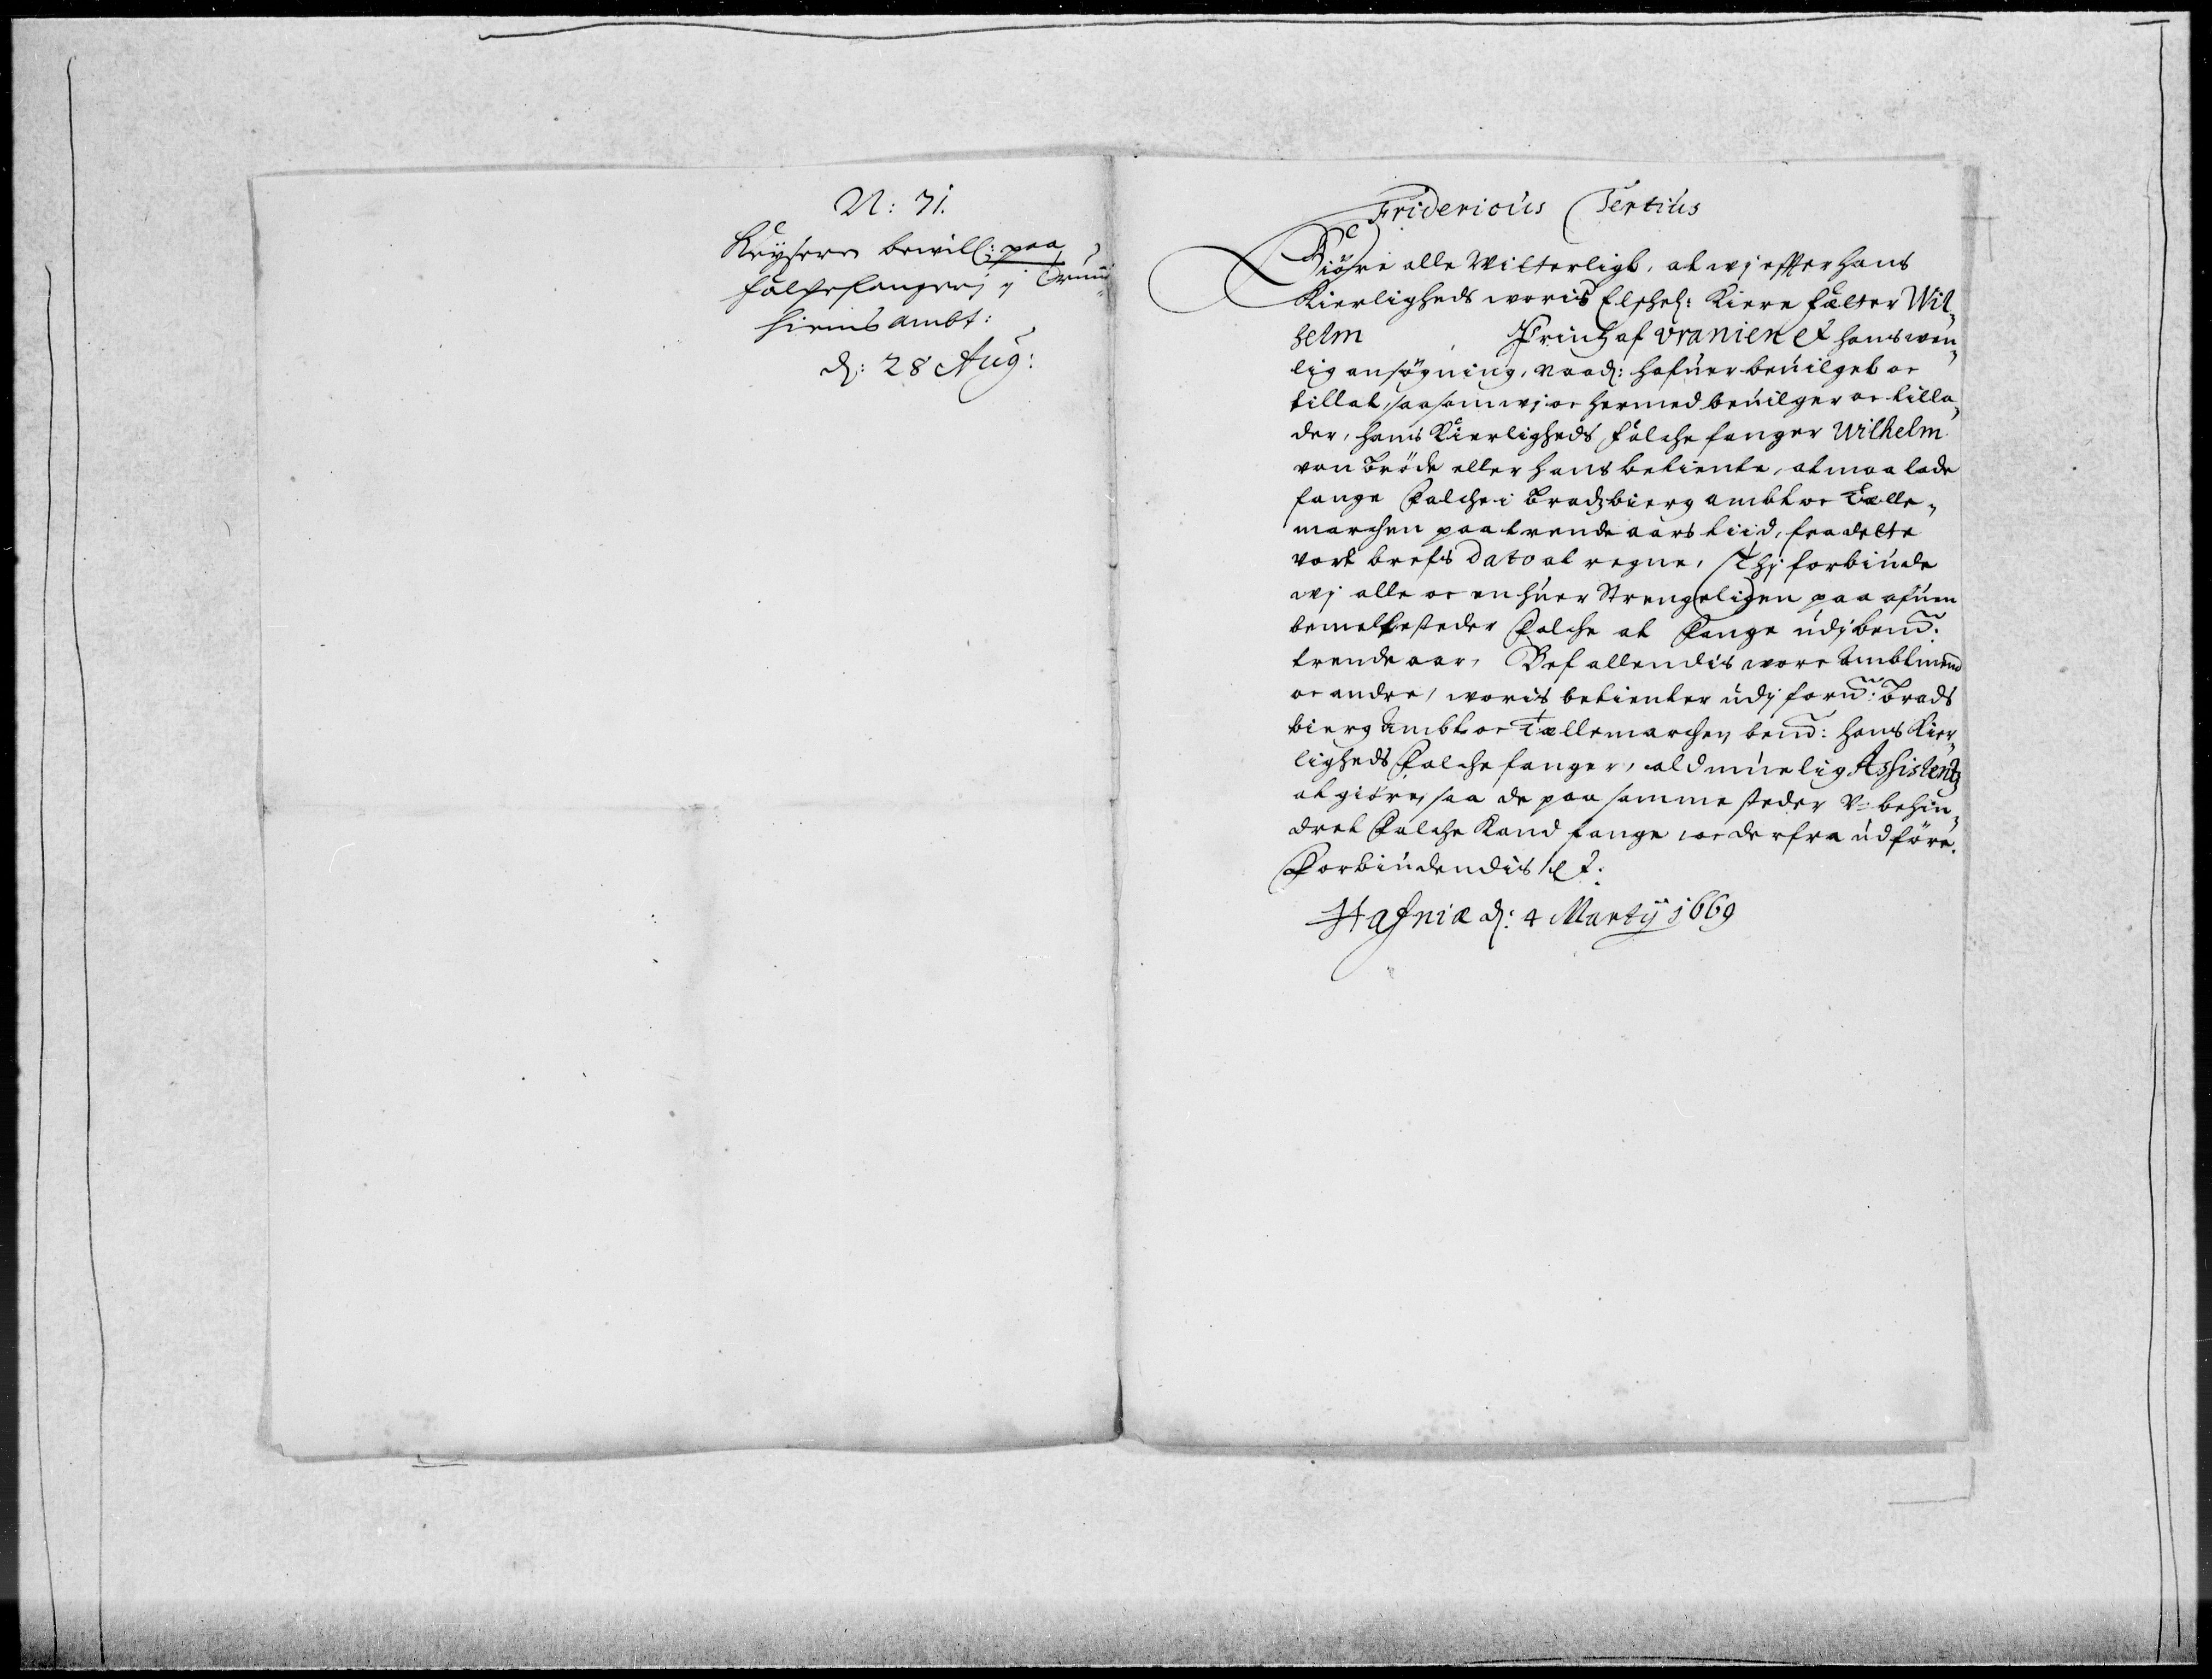 N: 71.
Keysere bewill: paa
falchefangerj j Trun
hiems ambt:
d: 28 Aug:
Fridericus Tertius
Giöre alle Witterligt, at wj effter hans
Kierligheds woris Elshel: Kiere fætter Wil„
helm Printz af Uranien et hans wen„
lig ansögning, naad: hafuer beuilget oc
tillat, saasom wj oc hermed beuilger oc tilla„
der, hans Kierligheds falche fanger Wilhelm
von Bröde eller hans betiente, at maa lade
fange Falche i Bradzbierg ambt oc Tælle„
marchen paa trende aars tiid, fra dette
vort brefs Dato at regne, Thj forbiude
wj alle oc en huer Strengeligen paa ofuen
bemelte steder Falche at Fange udj bemt:
trende aar, Befallendis wore Ambtmend
oc andre, woris betienter udj fornt: Brads
bierg Ambt oc Tællemarchen bemt: hans Kier„
ligheds Falche fanger, ald muelig Assistentz
at giöre, saa de paa samme steder V-behin„
dret Falche Kand fange oc derfra udföre.
Forbiudendis et.
Hafniæ d: 4 Martij 1669